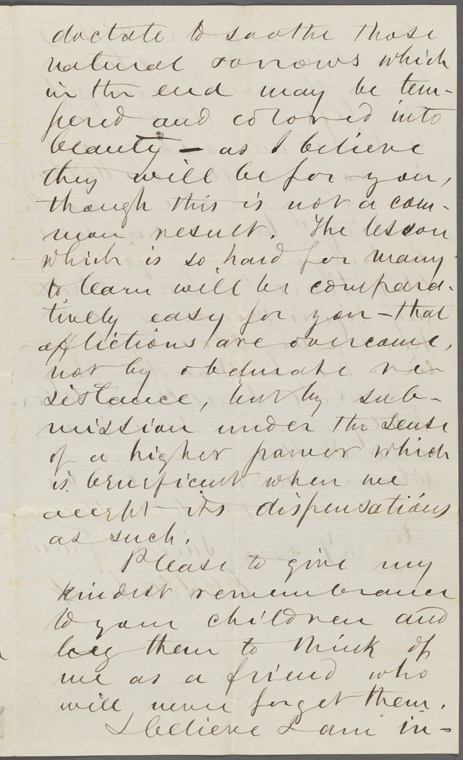 doctate to soothe those
natural sorrows which
in the end may be tem-
pered and colored into
beauty – as I believe
they will be for you,
though this is not a com-
mon result. The lesson
which is so hard for many
to learn will be compara-
tively easy for you – that
afflictions are overcome,
not by obdurate re-
sistance, but by sub-
mission under the sense
of a higher power which
is beneficent when we
accept its dispensations
as such.
Please to give my
kindest remembrance
to your children and
beg them to think of
me as a friend who
will never forget them.
I believe I am in-